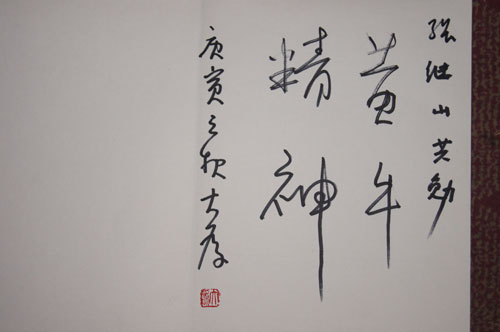 张继山共勉
黄牛
精神
庚寅之秋大为